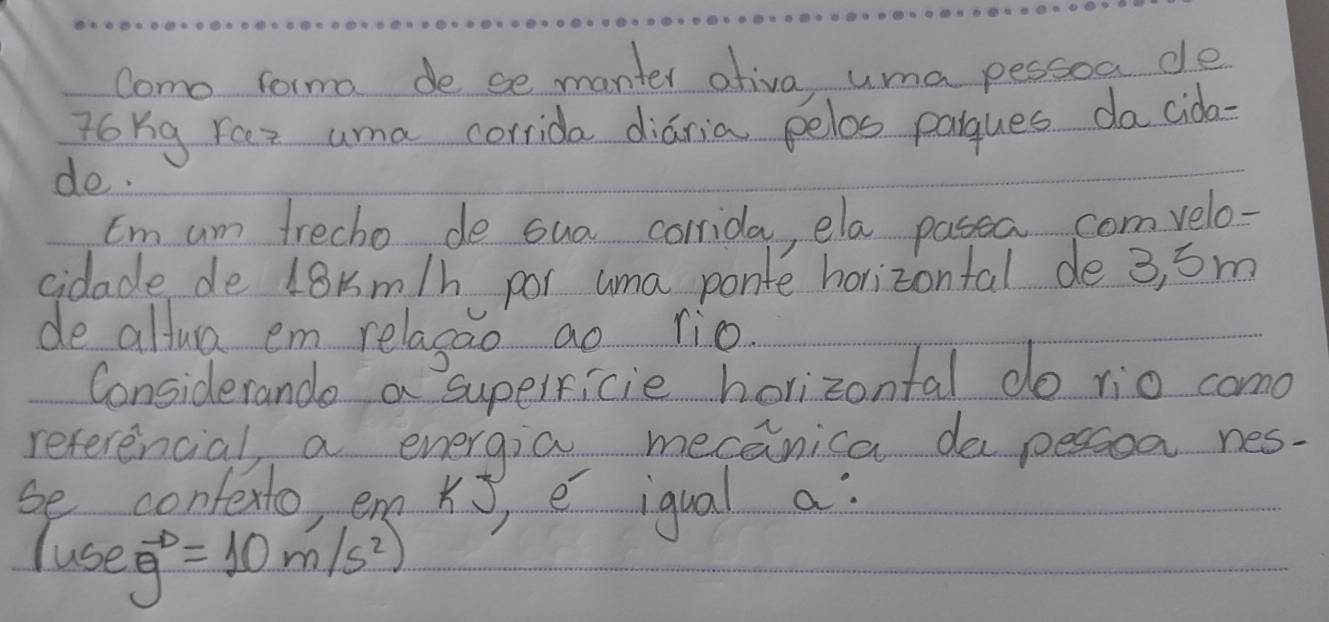 Como forma de se manter ativa, uma pessoa de
76Kg faz uma corrida diária pelos parques da cida-
de.
Em um trecho de sua corrida, ela passa com velo-
cidade de 18Km/h por uma ponte horizontal de 3,5m
de altura em relação ao rio.
Considerando a superfície horizontal do rio como
referêncial, a energia mecânica da pessoa nes-
se contexto, em KJ, é igual a:
(use g⃗ = 10 m/s²)